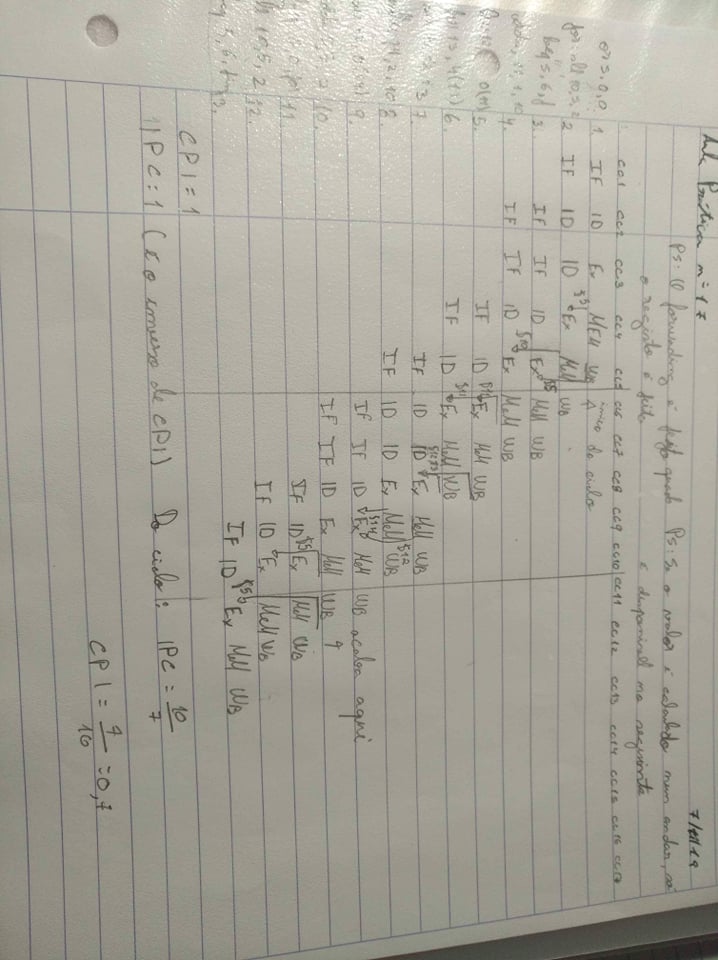 Aula Prática n=17 7/11/19
Ps: O forwarding é feito quando Ps: Se o valor é calculado num andar, só
o registo é feito é disponível no seguinte
cc1 cc2 cc3 cc4 cc5 cc6 cc7 cc8 cc9 cc10 cc11 cc12 cc13 cc14 cc15 cc16 cc17
or 5,0,0 1. IF ID Ex MEM WB início do ciclo
for: sll 10,5,2 2. IF ID ID $5 Ex MeM WB
beq 5,6,f 3. IF IF ID Ex $5 MeM WB
11, 1, 10 4. IF IF ID $10 Ex MeM WB
0(11) 5. IF ID $11 Ex MeM WB
13, 4(11) 6. IF ID $11 Ex MeM WB
7. IF ID ID $12 $13 Ex MeM WB
14, 2, 10 8. IF ID ID Ex MeM $12 WB
9. IF IF ID $14 Ex MeM WB acaba aqui
10. IF IF ID Ex MeM WB
11 IF ID $5 Ex MeM WB
10, 5, 2 12. IF ID Ex MeM WB
5, 6, fim 13. IF ID $5 Ex MeM WB
CPI = 1
IPC = 1 (é o inverso de CPI) Do ciclo: IPC = 10/7
CPI = 7/10 = 0,7